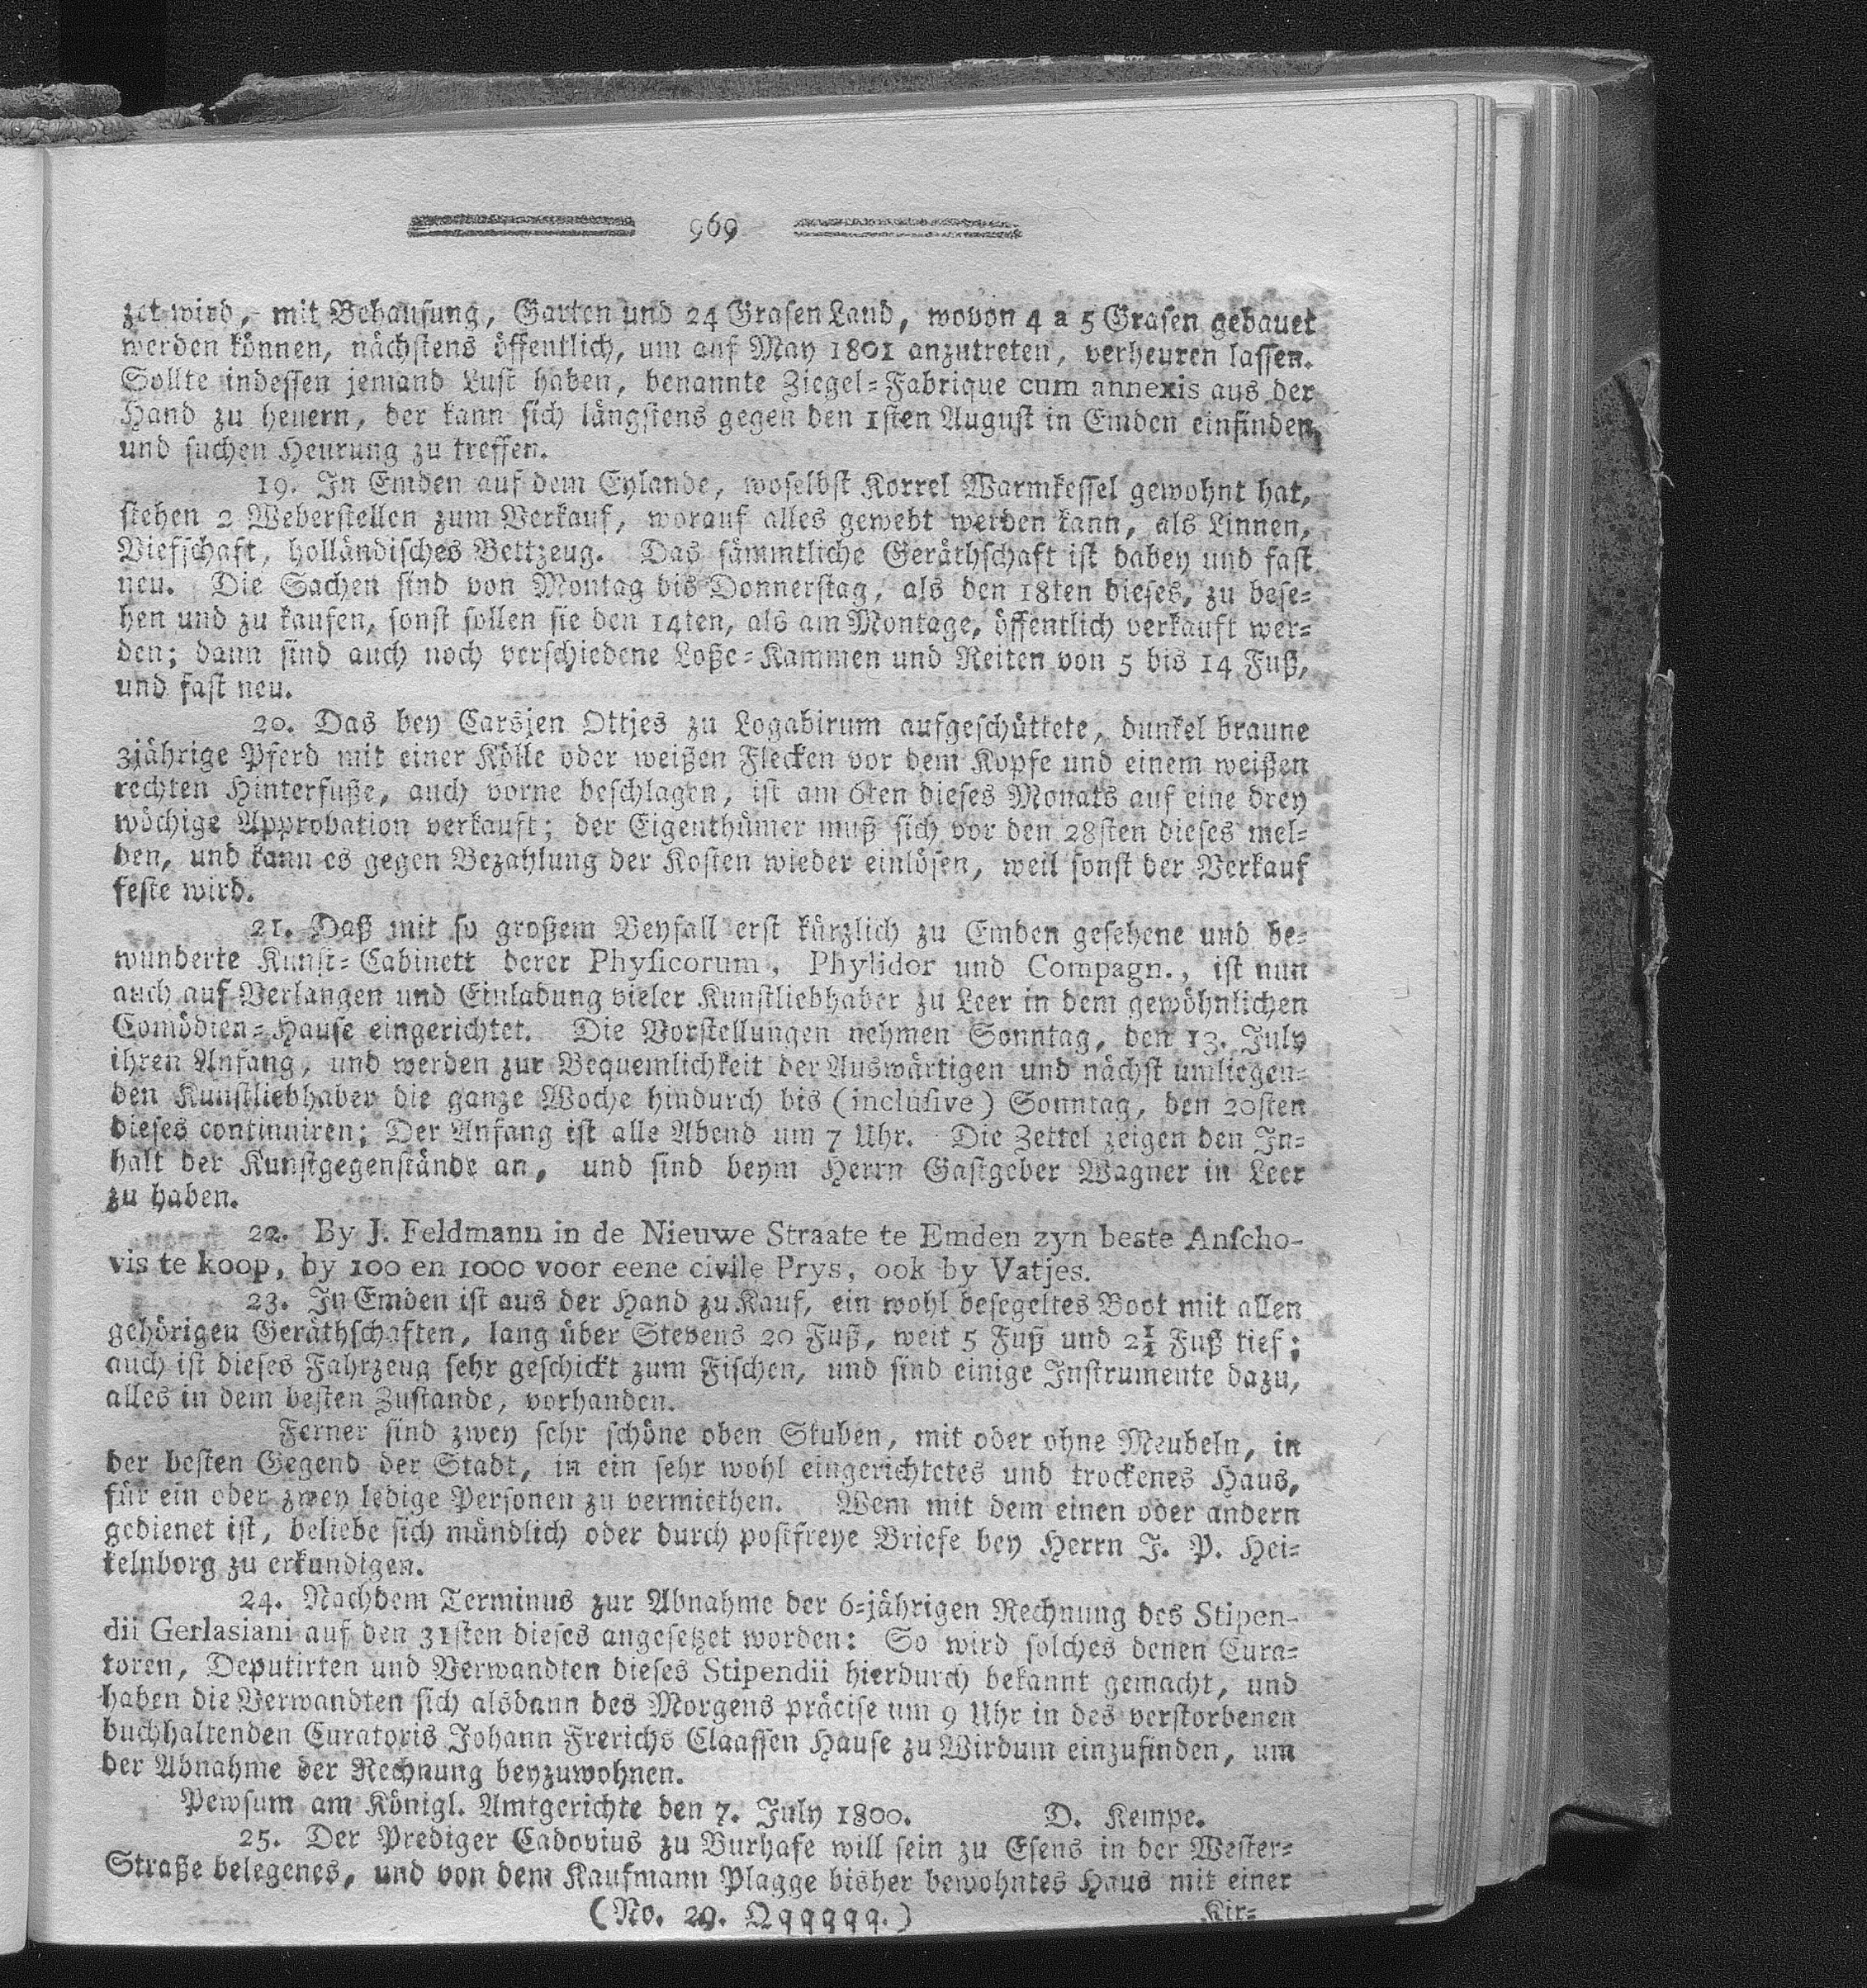 969
zet wird, mit Behausung, Garten und 24 Grasen Land, wovon 4 a 5 Grasen gebauet
werden können, nächstens öffentlich, um auf May 1801 anzutreten, verheuren lassen.
Sollte indessen jemand Lust haben, benannte Ziegel=Fabrique cum annexis aus der
Hand zu heuern, der kann sich längstens gegen den 1sten August in Emden einfinden,
und suchen Heurung zu treffen.
19. In Emden auf dem Eylande, woselbst Korrel Warmkessel gewohnt hat,
stehen 2 Weberstellen zum Verkauf, worauf alles gewebt werden kann, als Linnen,
Viefschaft, holländisches Bettzeug. Das sämmtliche Geräthschaft ist dabey und fast
neu. Die Sachen sind von Montag bis Donnerstag, als den 18ten dieses, zu bese=
hen und zu kaufen, sonst sollen sie den 14ten, als am Montage, öffentlich verkauft wer=
den; dann sind auch noch verschiedene Loße=Kammen und Reiten von 5 bis 14 Fuß,
und fast neu.
20. Das bey Carsjen Ottjes zu Logabirum aufgeschüttete, dunkel braune
3jährige Pferd mit einer Kölle oder weißen Flecken vor dem Kopfe und einem weißen
rechten Hinterfuße, auch vorne beschlagen, ist am 6ten dieses Monats auf eine drey
wöchige Approbation verkauft; der Eigenthümer muß sich vor den 28sten dieses mel=
den, und kann es gegen Bezahlung der Kosten wieder einlösen, weil sonst der Verkauf
feste wird.
21. Daß mit so großem Beyfall erst kürzlich zu Emden gesehene und be=
wunderte Kunst=Cabinett derer Physicorum, Phylidor und Compagn., ist nun
auch auf Verlangen und Einladung vieler Kunstliebhaber zu Leer in dem gewöhnlichen
Comödien=Hause eingerichtet. Die Vorstellungen nehmen Sonntag, den 13. July
ihren Anfang, und werden zur Bequemlichkeit der Auswärtigen und nächst umliegen=
den Kunstliebhaber die ganze Woche hindurch bis (inclusive) Sonntag, den 20sten
dieses continuiren; Der Anfang ist alle Abend um 7 Uhr. Die Zettel zeigen den In=
halt der Kunstgegenstände an, und sind beym Herrn Gastgeber Wagner in Leer
zu haben.
22. By J. Feldmann in de Nieuwe Straate te Emden zyn beste Anscho-
vis te koop, by 100 en 1000 voor eene civile Prys, ook by Vatjes.
23. In Emden ist aus der Hand zu Kauf, ein wohl besegeltes Boot mit allen
gehörigen Geräthschaften, lang über Stevens 20 Fuß, weit 5 Fuß und 2 1/2 Fuß tief;
auch ist dieses Fahrzeug sehr geschickt zum Fischen, und sind einige Instrumente dazu,
alles in dem besten Zustande, vorhanden.
Ferner sind zwey sehr schöne oben Stuben, mit oder ohne Meubeln, in
der besten Gegend der Stadt, in ein sehr wohl eingerichtetes und trockenes Haus,
für ein oder zwey ledige Personen zu vermiethen. Wem mit dem einen oder andern
gedienet ist, beliebe sich mündlich oder durch postfreye Briefe bey Herrn J. P. Hei=
kelnborg zu erkundigen.
24. Nachdem Terminus zur Abnahme der 6=jährigen Rechnung des Stipen-
dii Gerlasiani auf den 31sten dieses angesetzet worden: So wird solches denen Cura=
toren, Deputirten und Verwandten dieses Stipendii hierdurch bekannt gemacht, und
haben die Verwandten sich alsdann des Morgens präcise um 9 Uhr in des verstorbenen
buchhaltenden Curatoris Johann Frerichs Claassen Hause zu Wirdum einzufinden, um
der Abnahme der Rechnung beyzuwohnen.
Pewsum am Königl. Amtgerichte den 7. July 1800. D. Kempe.
25. Der Prediger Cadovius zu Burhafe will sein zu Esens in der Wester=
Straße belegenes, und von dem Kaufmann Plagge bisher bewohntes Haus mit einer
(No. 29. Qqqqqq.) Kir=